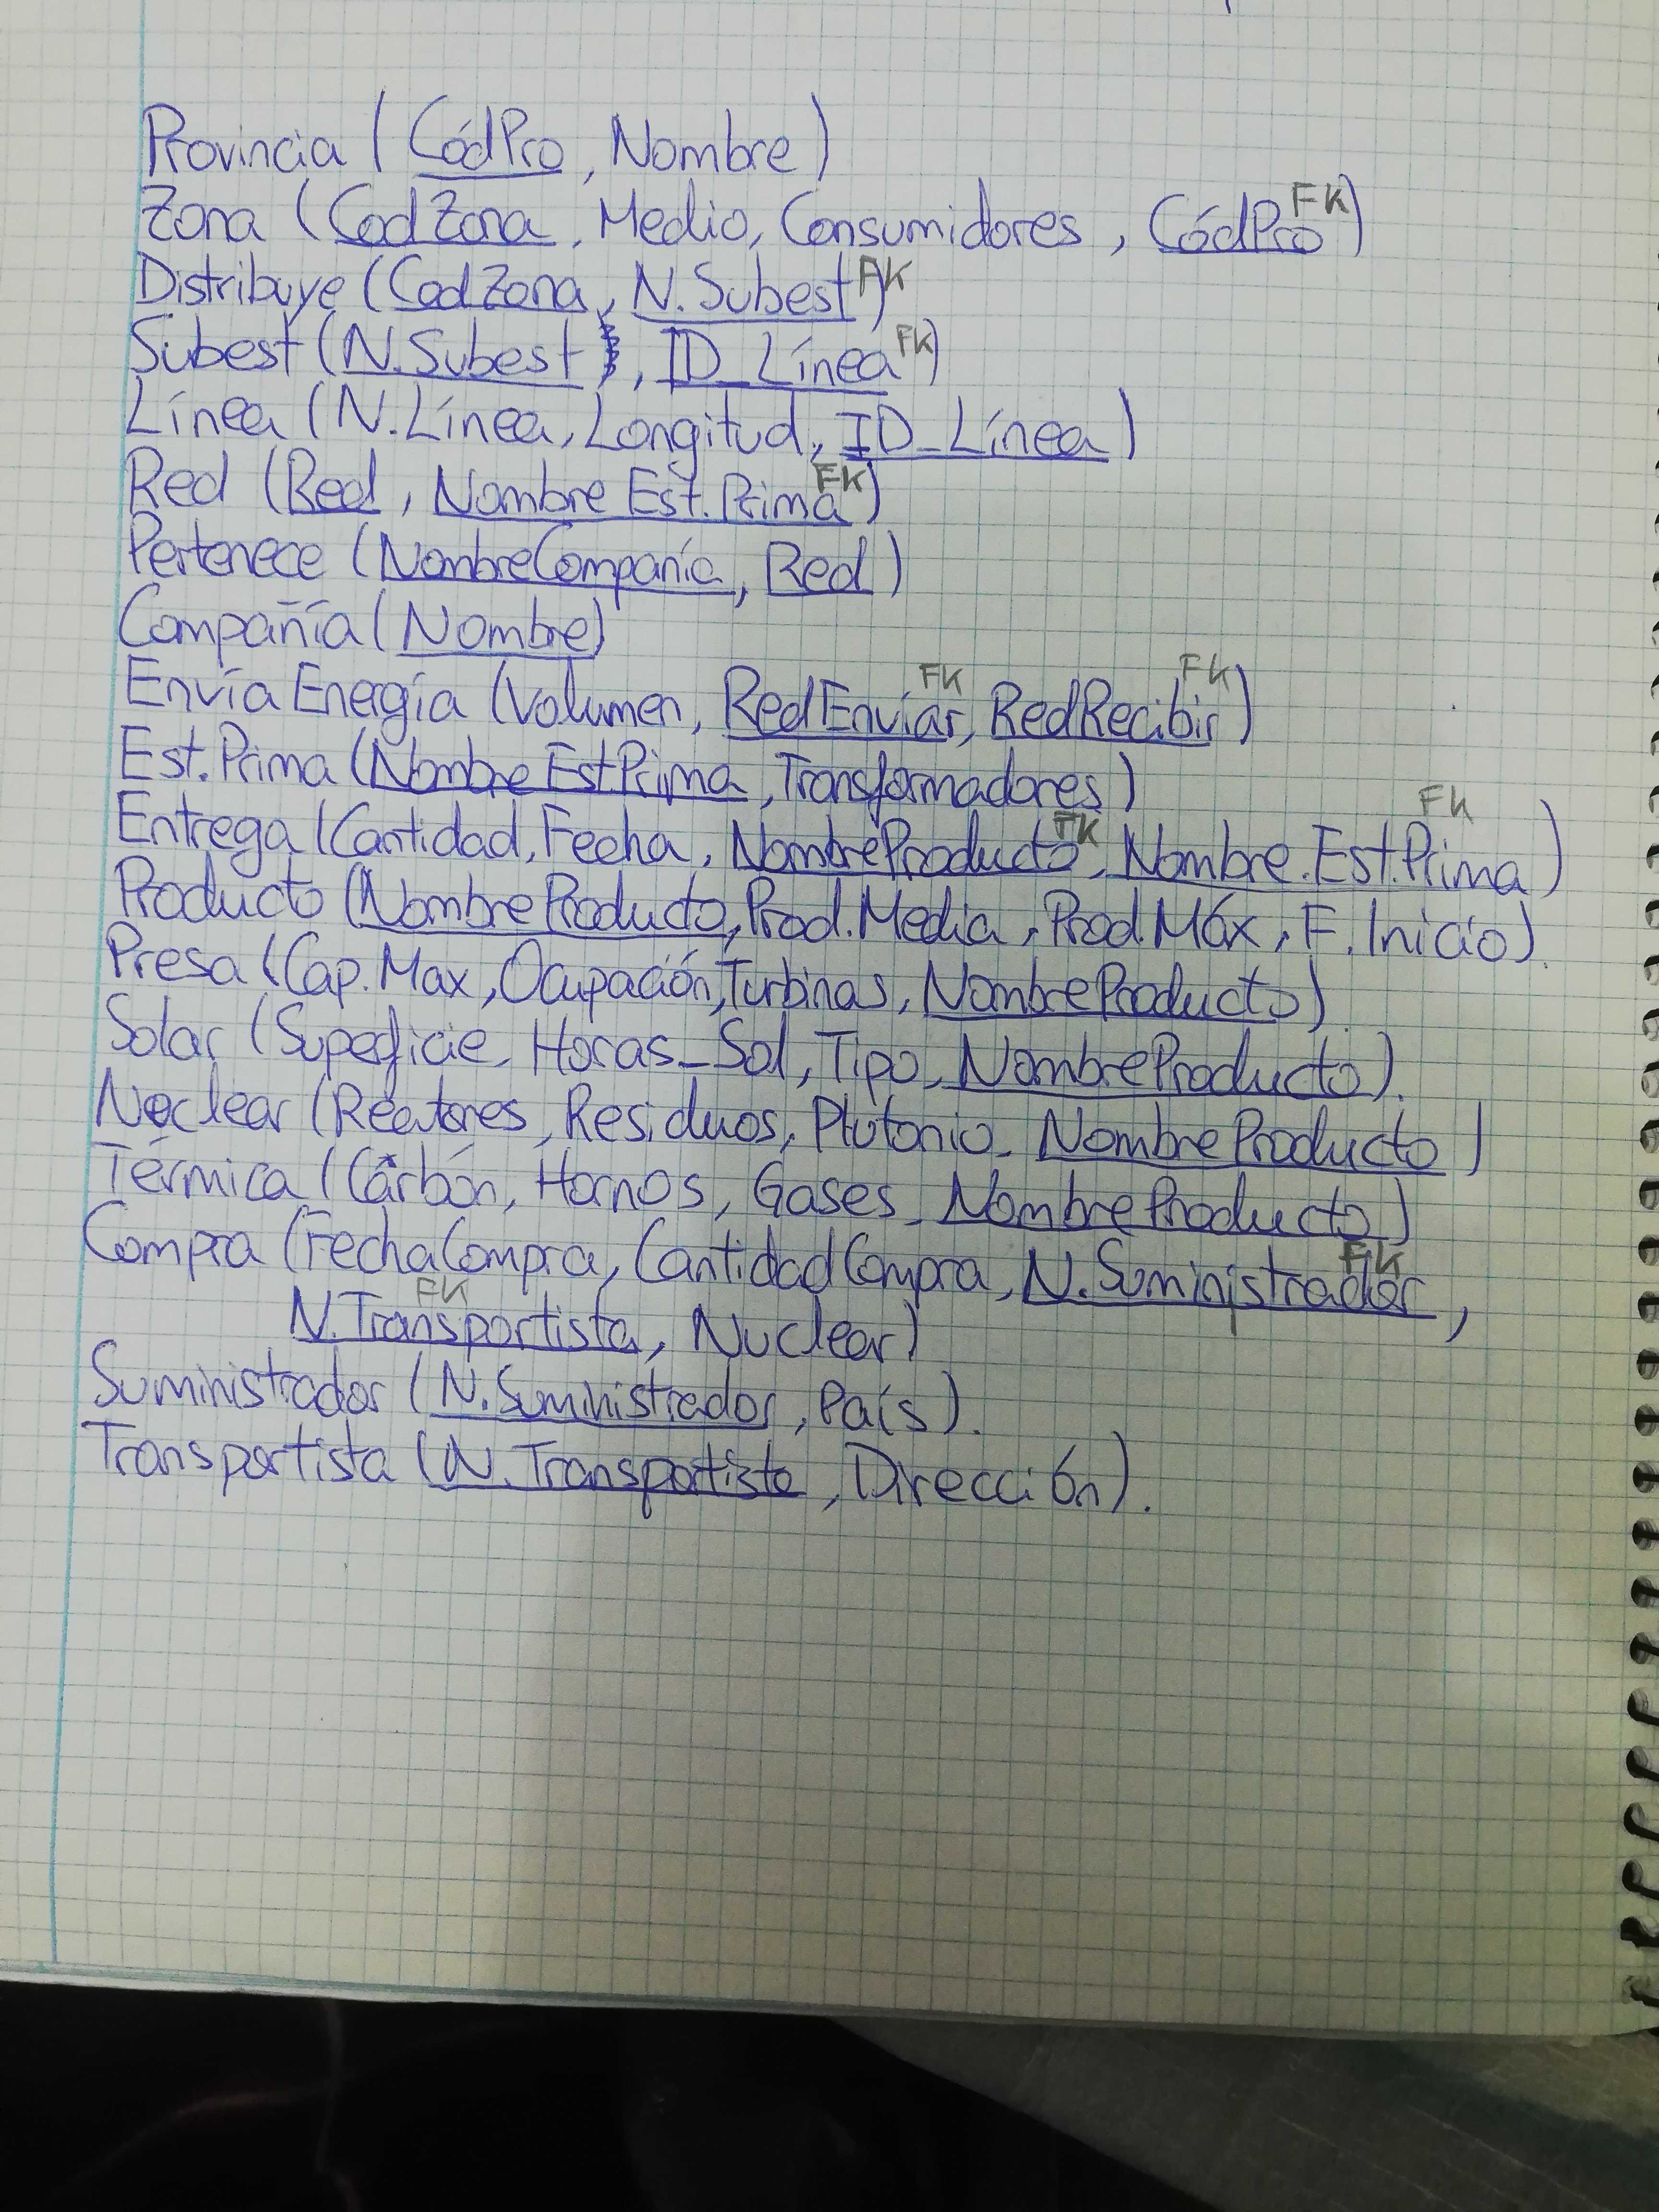 Provincia (CódPro, Nombre)
Zona (CodZona, Medio, Consumidores, CódPro FK)
Distribuye (CodZona, N.Subest) FK
Subest (N.Subest, ID_Línea FK)
Línea (N.Línea, Longitud, ID_Línea)
Red (Red, Nombre Est.Prima FK)
Pertenece (NombreCompañía, Red)
Compañía (Nombre)
Envía Energía (Volumen, RedEnviar FK, RedRecibir FK)
Est.Prima (Nombre EstPrima, Transformadores)
Entrega (Cantidad, Fecha, NombreProducto FK, Nombre.Est.Prima FK)
Producto (NombreProducto, Prod.Media, Prod.Máx, F.Inicio).
Presa (Cap.Max, Ocupación, Turbinas, NombreProducto).
Solar (Superficie, Horas_Sol, Tipo, NombreProducto).
Nuclear (Reatores, Residuos, Plutonio, NombreProducto)
Térmica (Carbón, Hornos, Gases, NombreProducto)
Compra (FechaCompra, CantidadCompra, N.Suministrador FK,
N.Transportista FK, Nuclear)
Suministrador (N.Suministrador, País).
Transportista (N.Transportista, Dirección).